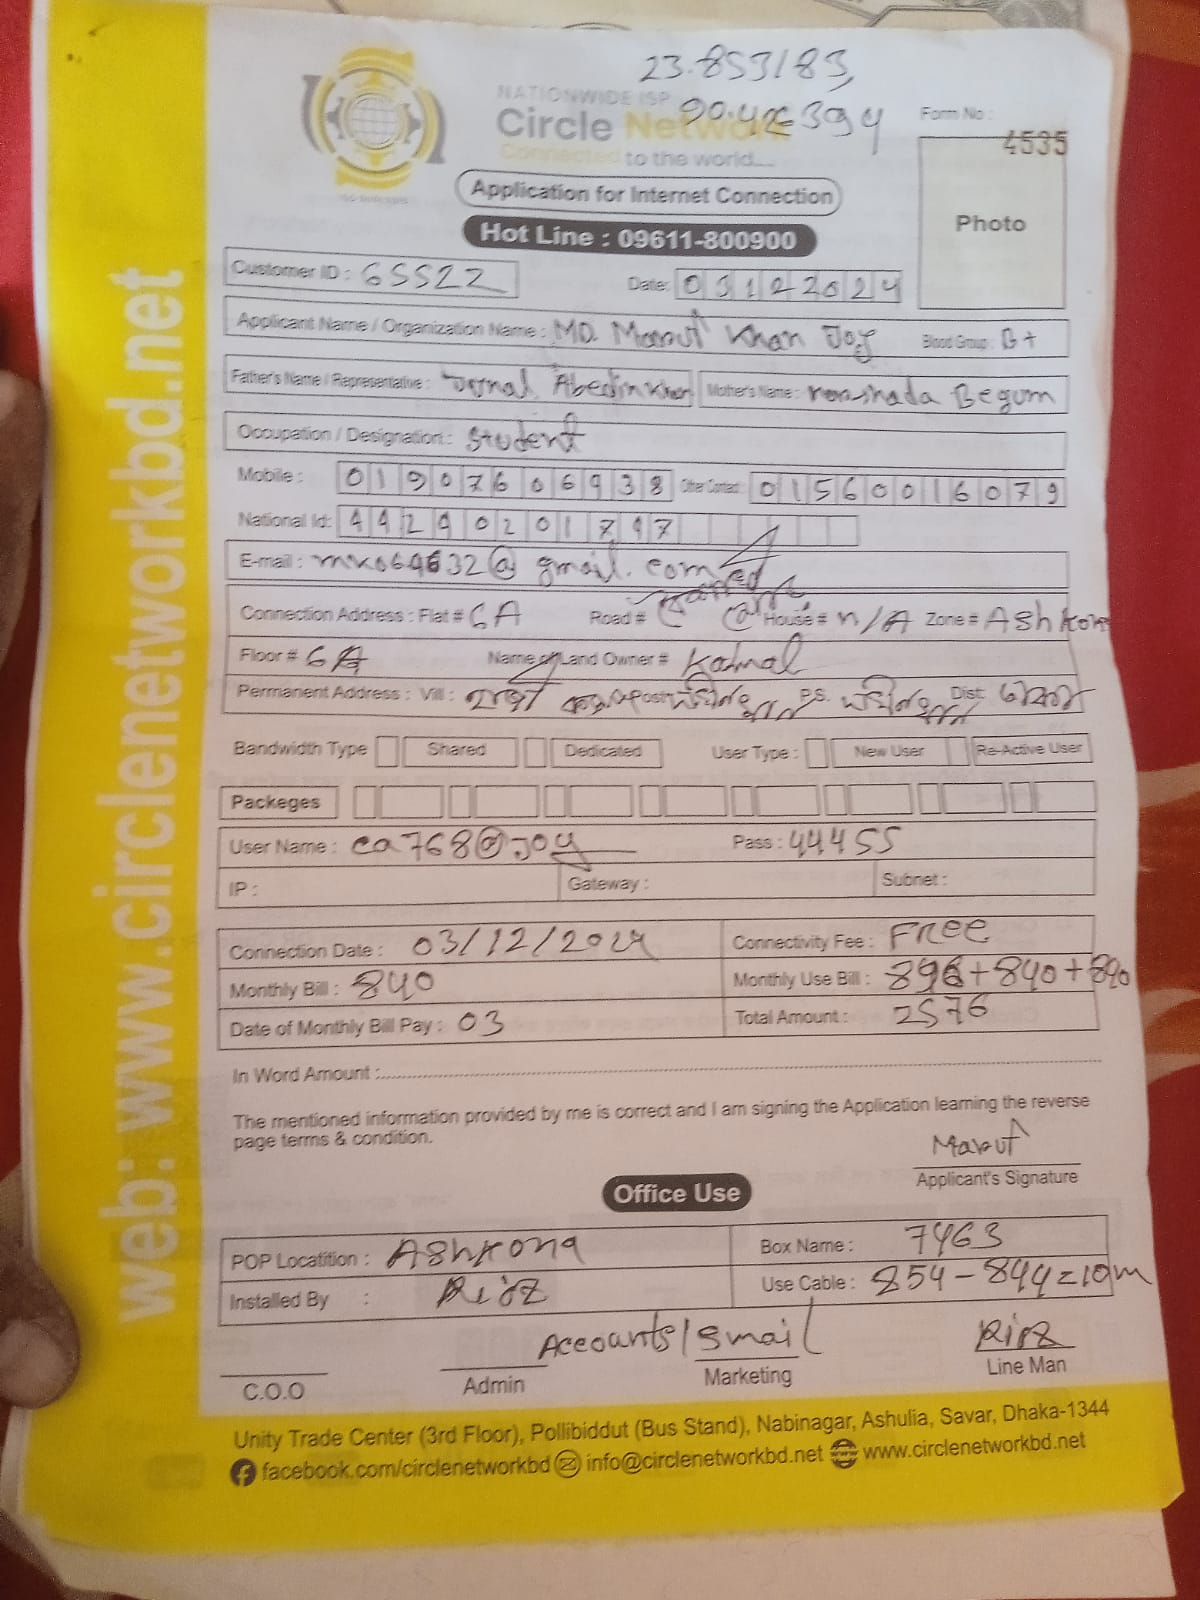 23.853183,
90.426394
NATIONWIDE ISP
Circle Network
Connected to the world....
Form No :
4535
Application for Internet Connection
Photo
Hot Line : 09611-800900
Customer ID : 65522
Date: 03122024
Applicant Name / Organization Name : MD. Maruf Khan Joy Blood Group : B+
Father's Name / Representative : Abedin Khan Mother's Name : Begum
Occupation / Designation : Student
Mobile : 01907606938 Other Contact : 01560016079
National Id:
E-mail : @gmail.com
Connection Address : Flat # 6A Road # House # n/A Zone # Ashkona
Floor # 6A Name of Land Owner # Kamal
Permanent Address : Vill : Post P.S. Dist:
Bandwidth Type Shared Dedicated User Type : New User Re-Active User
Packeges
User Name : ca768@joy Pass : 44455
IP : Gateway : Subnet :
Connection Date : 03/12/2024 Connectivity Fee : FREE
Monthly Bill : 840 Monthly Use Bill : 896+840+840
Date of Monthly Bill Pay : 03 Total Amount : 2576
In Word Amount :
The mentioned information provided by me is correct and I am signing the Application learning the reverse
page terms & condition.
Maruf
Applicant's Signature
Office Use
POP Locatition : Ashkona Box Name : 7463
Installed By : Use Cable : 854-844=10m
Accounts/
C.O.O Admin Marketing Line Man
Unity Trade Center (3rd Floor), Pollibiddut (Bus Stand), Nabinagar, Ashulia, Savar, Dhaka-1344
facebook.com/circlenetworkbd info@circlenetworkbd.net www.circlenetworkbd.net
web: www.circlenetworkbd.net